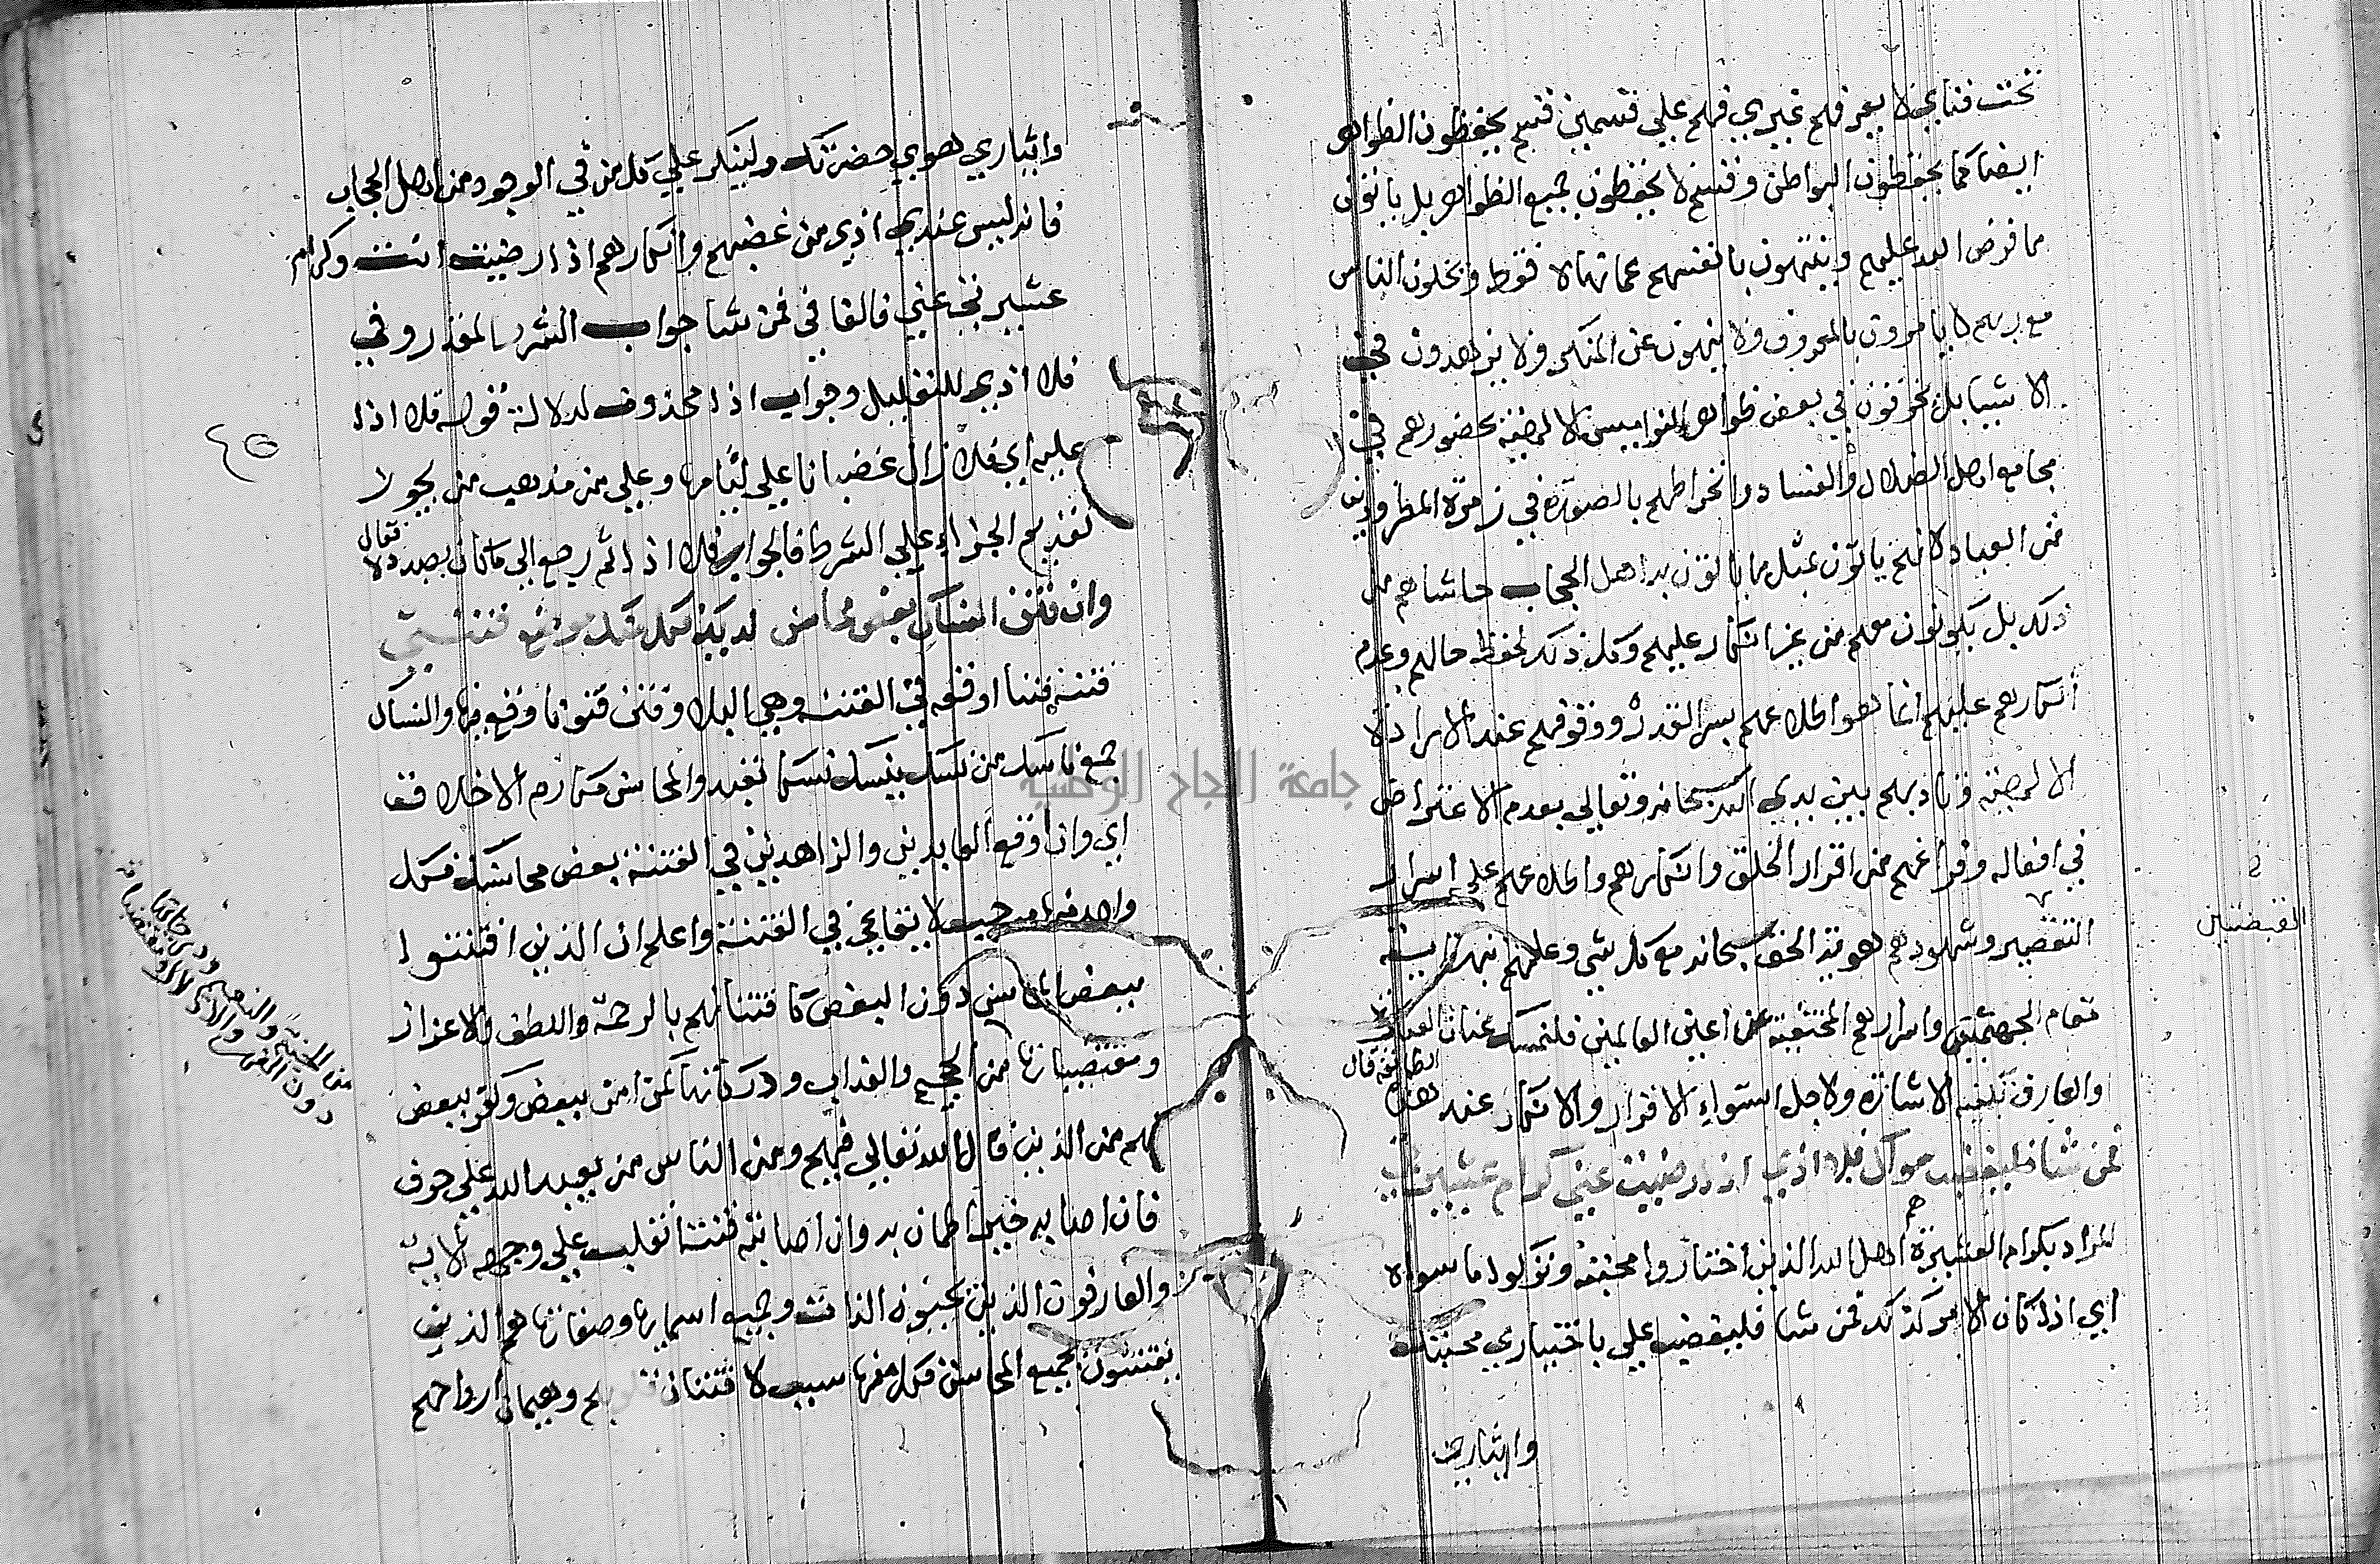 تحت قبابي لا يعرفهم غيري فهم علي قسمين قسم يحفظون الظواهر
ايضا كما يحفظون البواطن وقسم لا يحفظون جميع الظواهر بل ياتون
ما فرض الله عليهم وينتهون بانفسهم عما نهاه فقط ويخلون الناس
مع ربهم لا يامرون بالمعروف ولا ينهون عن المنكر ولا يزهدون في
الاشيا بل يخرقون في بعض ظواهر النواميس الالهية بحضورهم في
مجامع اهل الضلال والفساد وانخراطهم بالصورة في زمرة المطرودين
من العباد لانهم ياتون بمثل ما ياتون به اهل الحجاب حاشاهم من
ذلك بل يكونون معهم من غير انكار عليهم وكل ذلك لحفظ حالهم وعدم
انكارهم عليهم انما هو اطلاعهم بسر القدر ووقوفهم عند الارادة
الالهية وتادبهم بين يدي الله سبحانه وتعالي بعدم الاعتراض
في افعاله وفراغهم من اقرار الخلق وانكارهم واطلاعهم علي اسرار
القبضتين
التقصير وشهودهم هوية الحق سبحانه مع كل شي وعلمهم بهذا
تمام الجهتين واسرارهم المختفية عن اعين العالمين فلنمسك عنان
والعارف تكفيه الاشارة ولاجل استواء الاقرار والانكار عند هذه
الطائفة قال
فمن شا فليغضب سواك فلا اذي اذا رضيت عني كرام عشيرتي
المراد بكرام العشيرة هم اهل الله الذين اختاروا محبته وتركوا ما سواه
اي اذا كان الامر كذلك فمن شا فليغضب علي باختياري محبتك
وايثاري
وايثاري هوي حضرتك ولينكر علي كل من في الوجود من اهل الحجاب
فانه ليس عندي اذي من غضبهم وانكارهم اذا رضيت انت وكرام
عشيرتي عني فالفا في فمن شا جواب الشرط المقدر وفي
فلا اذي للتعليل وجواب اذا محذوف لدلالة قوله فلا اذا
عليه اي فلا زال غضبانا علي ليامها وعلي من مذهب من يجوز
تقديم الجزاء علي الشرط فالجواب فلا اذا ثم رجع الي ما كان بصدده
فقال
وان فتن النساك بعض محاسن لديك فكل منك موضع فتنتي
فتنه فتنا اوقعه في الفتنة وهي البلا وفتن فتونا وقع فيها والنساك
جمع ناسك من نسك ينسك نسكا تعبد والمحاسن مكارم الاخلاق
اي وان اوقع العابدين والزاهدين في الفتنة بعض محاسنك فكل
واحد منها لا يقايي في الفتنة واعلم ان الذين افتتنوا
ببعض المحاسن دون البعض كافتتانهم بالرحمة واللطف والاعزاز
ومقتضياتها من الجحيم والعذاب ودركاتها كمن امن ببعض وكفر ببعض
من الجنة والنعيم ودرجاتها
دون القهر والاذلال ومقتضياته
هم من الذين قال الله تعالي فيهم ومن الناس من يعبد الله علي حرف
فان اصابه خير اطمان به وان اصابته فتنة انقلب علي وجهه الاية
والعارفون الذين يحبون الذات وجميع اسمايها وصفاتها هم الذين
يفتتنون بجميع المحاسن فكل منها سبب لافتتان قلوبهم وهيمان ارواحهم
جامعة النجاح الوطنية